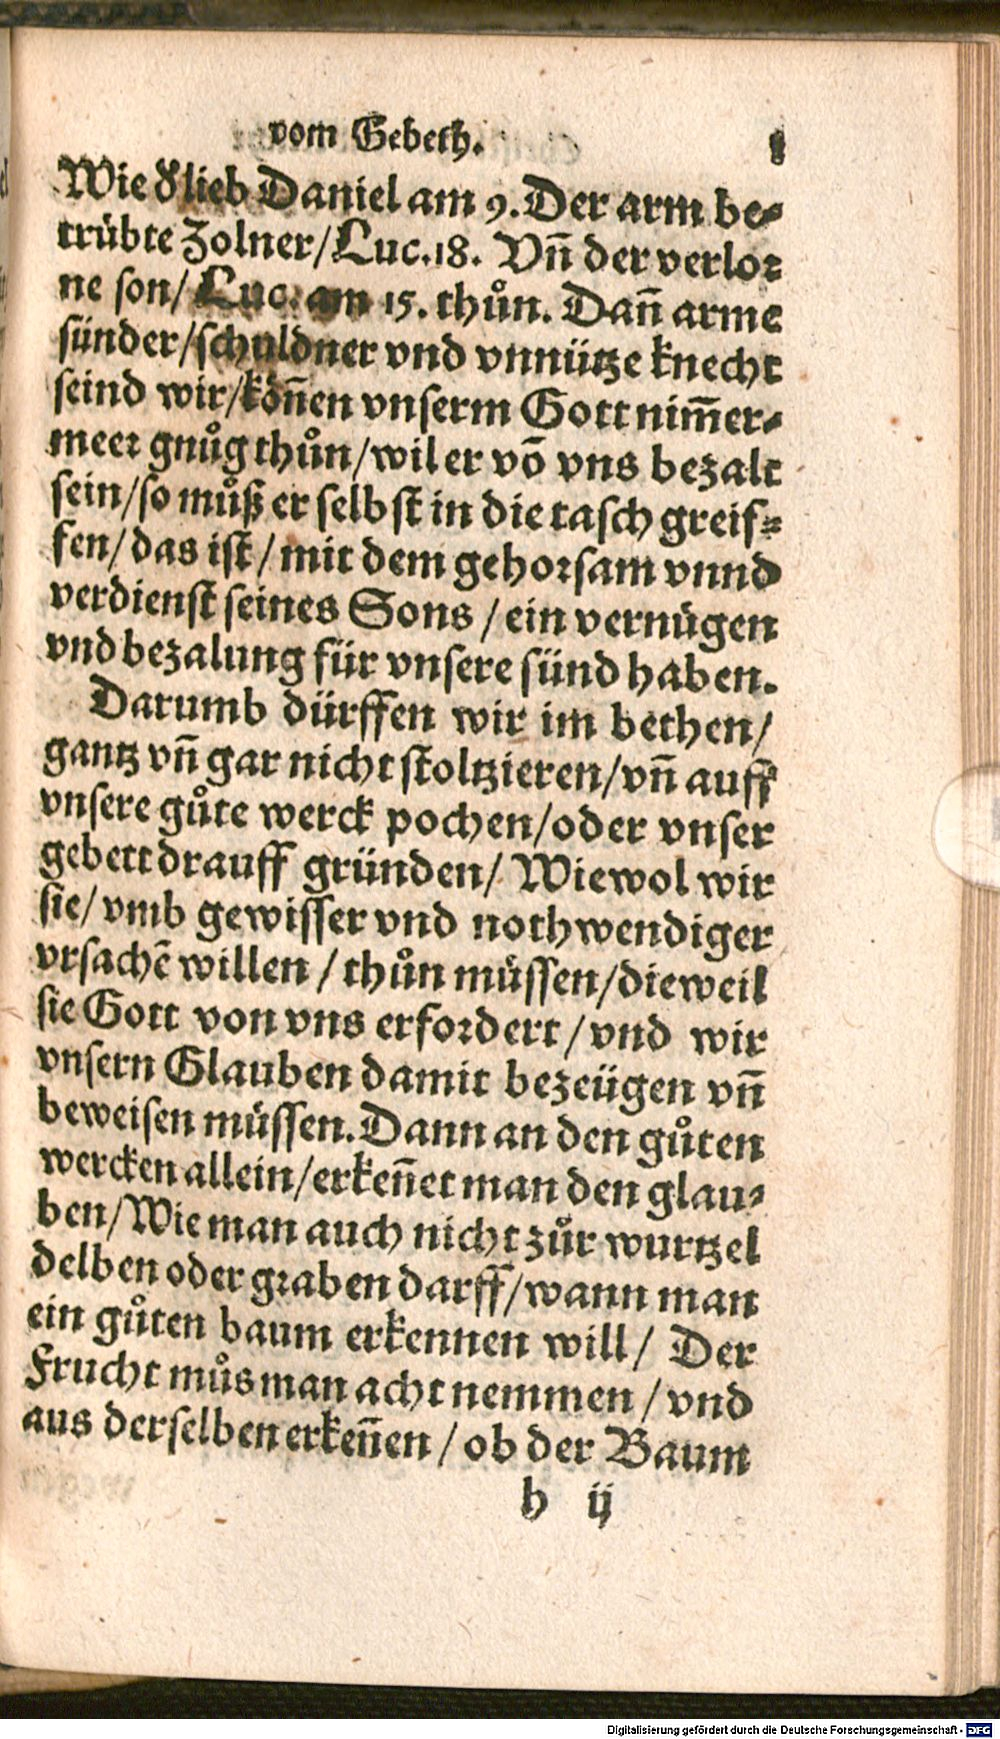 vom Gebeth.
Wie d' lieb Daniel am 9. Der arm be⸗
trübte Zolner/ Luc. 18. Vn̄ der verlor
ne son/ Luc. am 15. thůn. Dan̄ arme
sünder/ schuldner vnd vnnütze knecht
seind wir/ kön̄en vnserm Gott nim̄er⸗
meer gnůg thůn/ wil er vō vns bezalt
sein/ so můß er selbst in die tasch greif⸗
fen/ das ist/ mit dem gehorsam vnnd
verdienst seines Sons / ein vernügen
vnd bezalung für vnsere sünd haben.
Darumb dürffen wir im bethen/
gantz vn̄ gar nicht stoltzieren/ vn̄ auff
vnsere gůte werck pochen/ oder vnser
gebett drauff gründen/ Wiewol wir
sie/ vmb gewisser vnd nothwendiger
vrsachē willen / thůn müssen/ dieweil
sie Gott von vns erfordert / vnd wir
vnsern Glauben damit bezeügen vn̄
beweisen müssen. Dann an den gůten
wercken allein/ erken̄et man den glau⸗
ben/ Wie man auch nicht zůr wurtzel
delben oder graben darff/ wann man
ein gůten baum erkennen will/ Der
Frucht můs man acht nemmen / vnd
aus derselben erken̄en / ob der Baum
b ij
Digitalisierung gefördert durch die Deutsche Forschungsgemeinschaft - DFG